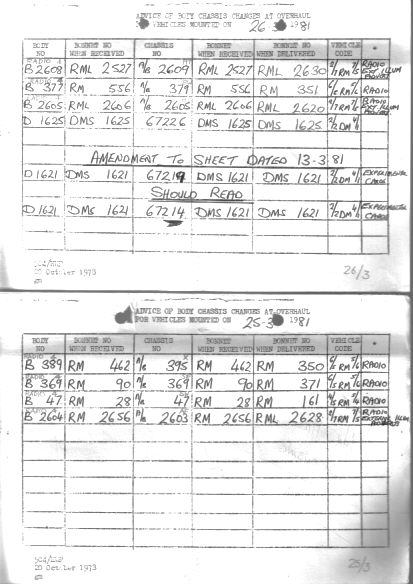 ADVICE OF BODY CHASSIS CHANGES AT OVERHAUL
FOR VEHICLES MOUNTED ON 26-3 1981
BODY NO BONNET NO WHEN RECEIVED CHASSIS NO BONNET WHEN RECEIVED BONNET WHEN DELIVERED VEHICLE CODE REMARKS
RADIO
B 2608 RML 2527 A/B 2609 RML 2527 RML 2630 2/7 RM 7/5 RADIO EXT ILLUM ADVERT
B 377 RM 556 A/B 379 RM 556 RM 351 RADIO
B 2605 RML 2606 A/B 2605 RML 2606 RML 2620 RADIO EXT ILLUM ADVERT
D 1625 DMS 1625 67226 DMS 1625 DMS 1625 2/2 DM 4/1
AMENDMENT TO SHEET DATED 13-3.81
D 1621 DMS 1621 67219 DMS 1621 DMS 1621 2/2 DM 4/1 EXPERIMENTAL CARDS
SHOULD READ
D 1621 DMS 1621 67214 DMS 1621 DMS 1621 2/2 DM 4/1 EXPERIMENTAL CARDS
20 October 1973
26/3
ADVICE OF BODY CHASSIS CHANGES AT OVERHAUL
FOR VEHICLES MOUNTED ON 25-3 1981
BODY NO BONNET NO WHEN RECEIVED CHASSIS NO BONNET WHEN RECEIVED BONNET NO WHEN DELIVERED VEHICLE CODE
RADIO
B 389 RM 462 A/B 395 RM 462 RM 350 RM RADIO
RADIO
B 369 RM 90 A/B 369 RM 90 RM 371 RM RADIO
RADIO
B 47 RM 28 A/B 47 RM 28 RM 161 RM RADIO
RADIO
B 2604 RM 2656 A/B 2603 RM 2656 RML 2628 RM RADIO EXTERIOR ILLUM
20 October 1973
25/3